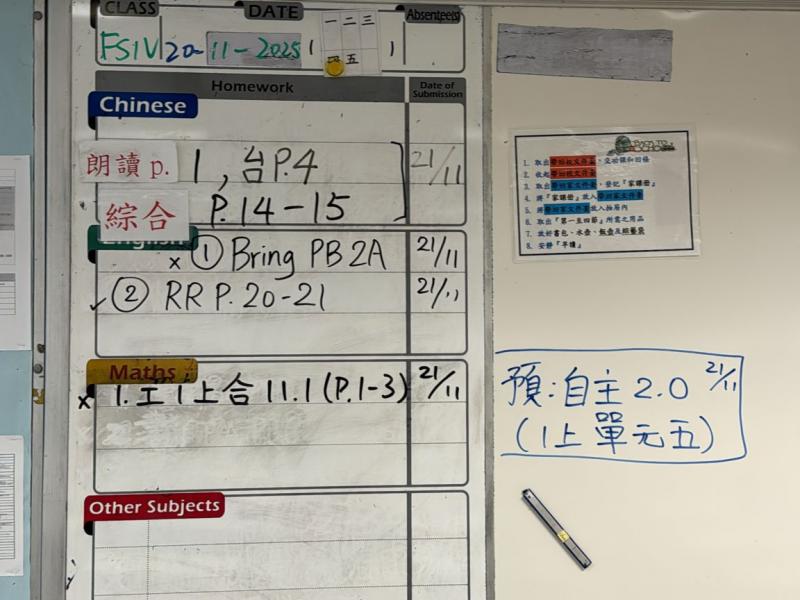 CLASS DATE Absentees
FSIV 20-11-2025 ( 一 二 三 )
四 五
Homework Date of Submission
Chinese
朗讀 p. 1 , 台P.4 21/11
綜合 P.14-15
English
x ① Bring PB 2A 21/11
✓ ② RR P. 20-21 21/11
Maths
x 1. 工1上合 11.1 (P.1-3) 21/11
Other Subjects
BACK TO SCHOOL
1. 取出帶回校文件盒、交功課和回條
2. 收起帶回校文件盒
3. 取出帶回家文件盒,登記『家課冊』
4. 將『家課冊』放入帶回家文件盒
5. 將帶回家文件盒放入抽屜內
6. 取出『第一至四節』所需之用品
7. 放好書包、水壺、飯壺及餐藝袋
8. 安靜『早讀』
預:自主 2.0 21/11
(1上 單元五)